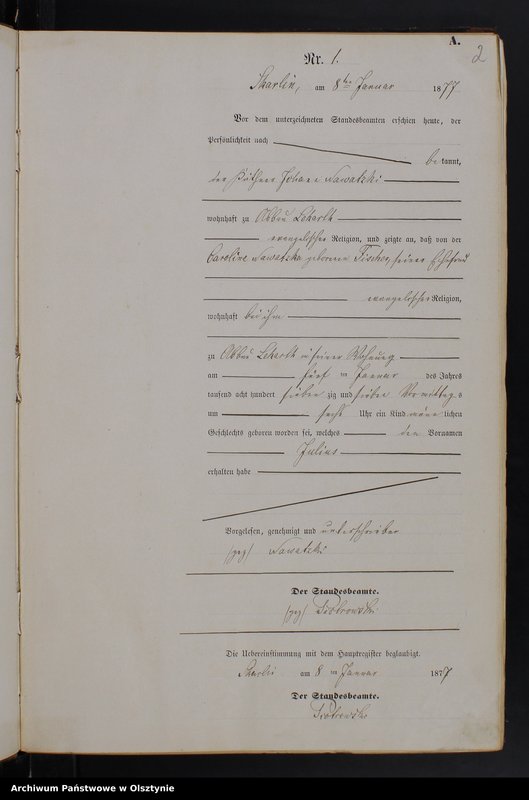 A.
2
Nr. 1.
Skarlin, am 8ten Januar 1877.
Vor dem unterzeichneten Standesbeamten erschien heute, der
Persönlichkeit nach
bekannt,
der Käthner Johann Nawatzki
wohnhaft zu Abbau Lekarth
evangelischer Religion, und zeigte an, daß von der
Caroline Nawatzka geborenen Fischer, seiner Ehefrau
evangelischer Religion,
wohnhaft bei ihm
zu Abbau Lekarth in seiner Wohnung
am fünf ten Januar des Jahres
tausend acht hundert sieben zig und sieben Vormittags
um sechs Uhr ein Kind männlichen
Geschlechts geboren worden sei, welches den Vornamen
Julius
erhalten habe
Vorgelesen, genehmigt und unterschrieben
(gez) Nawatzki
Der Standesbeamte.
(gez) Piotrowski
Die Uebereinstimmung mit dem Hauptregister beglaubigt.
Skarlin am 8 ten Januar 1877
Der Standesbeamte.
Piotrowski
Archiwum Państwowe w Olsztynie